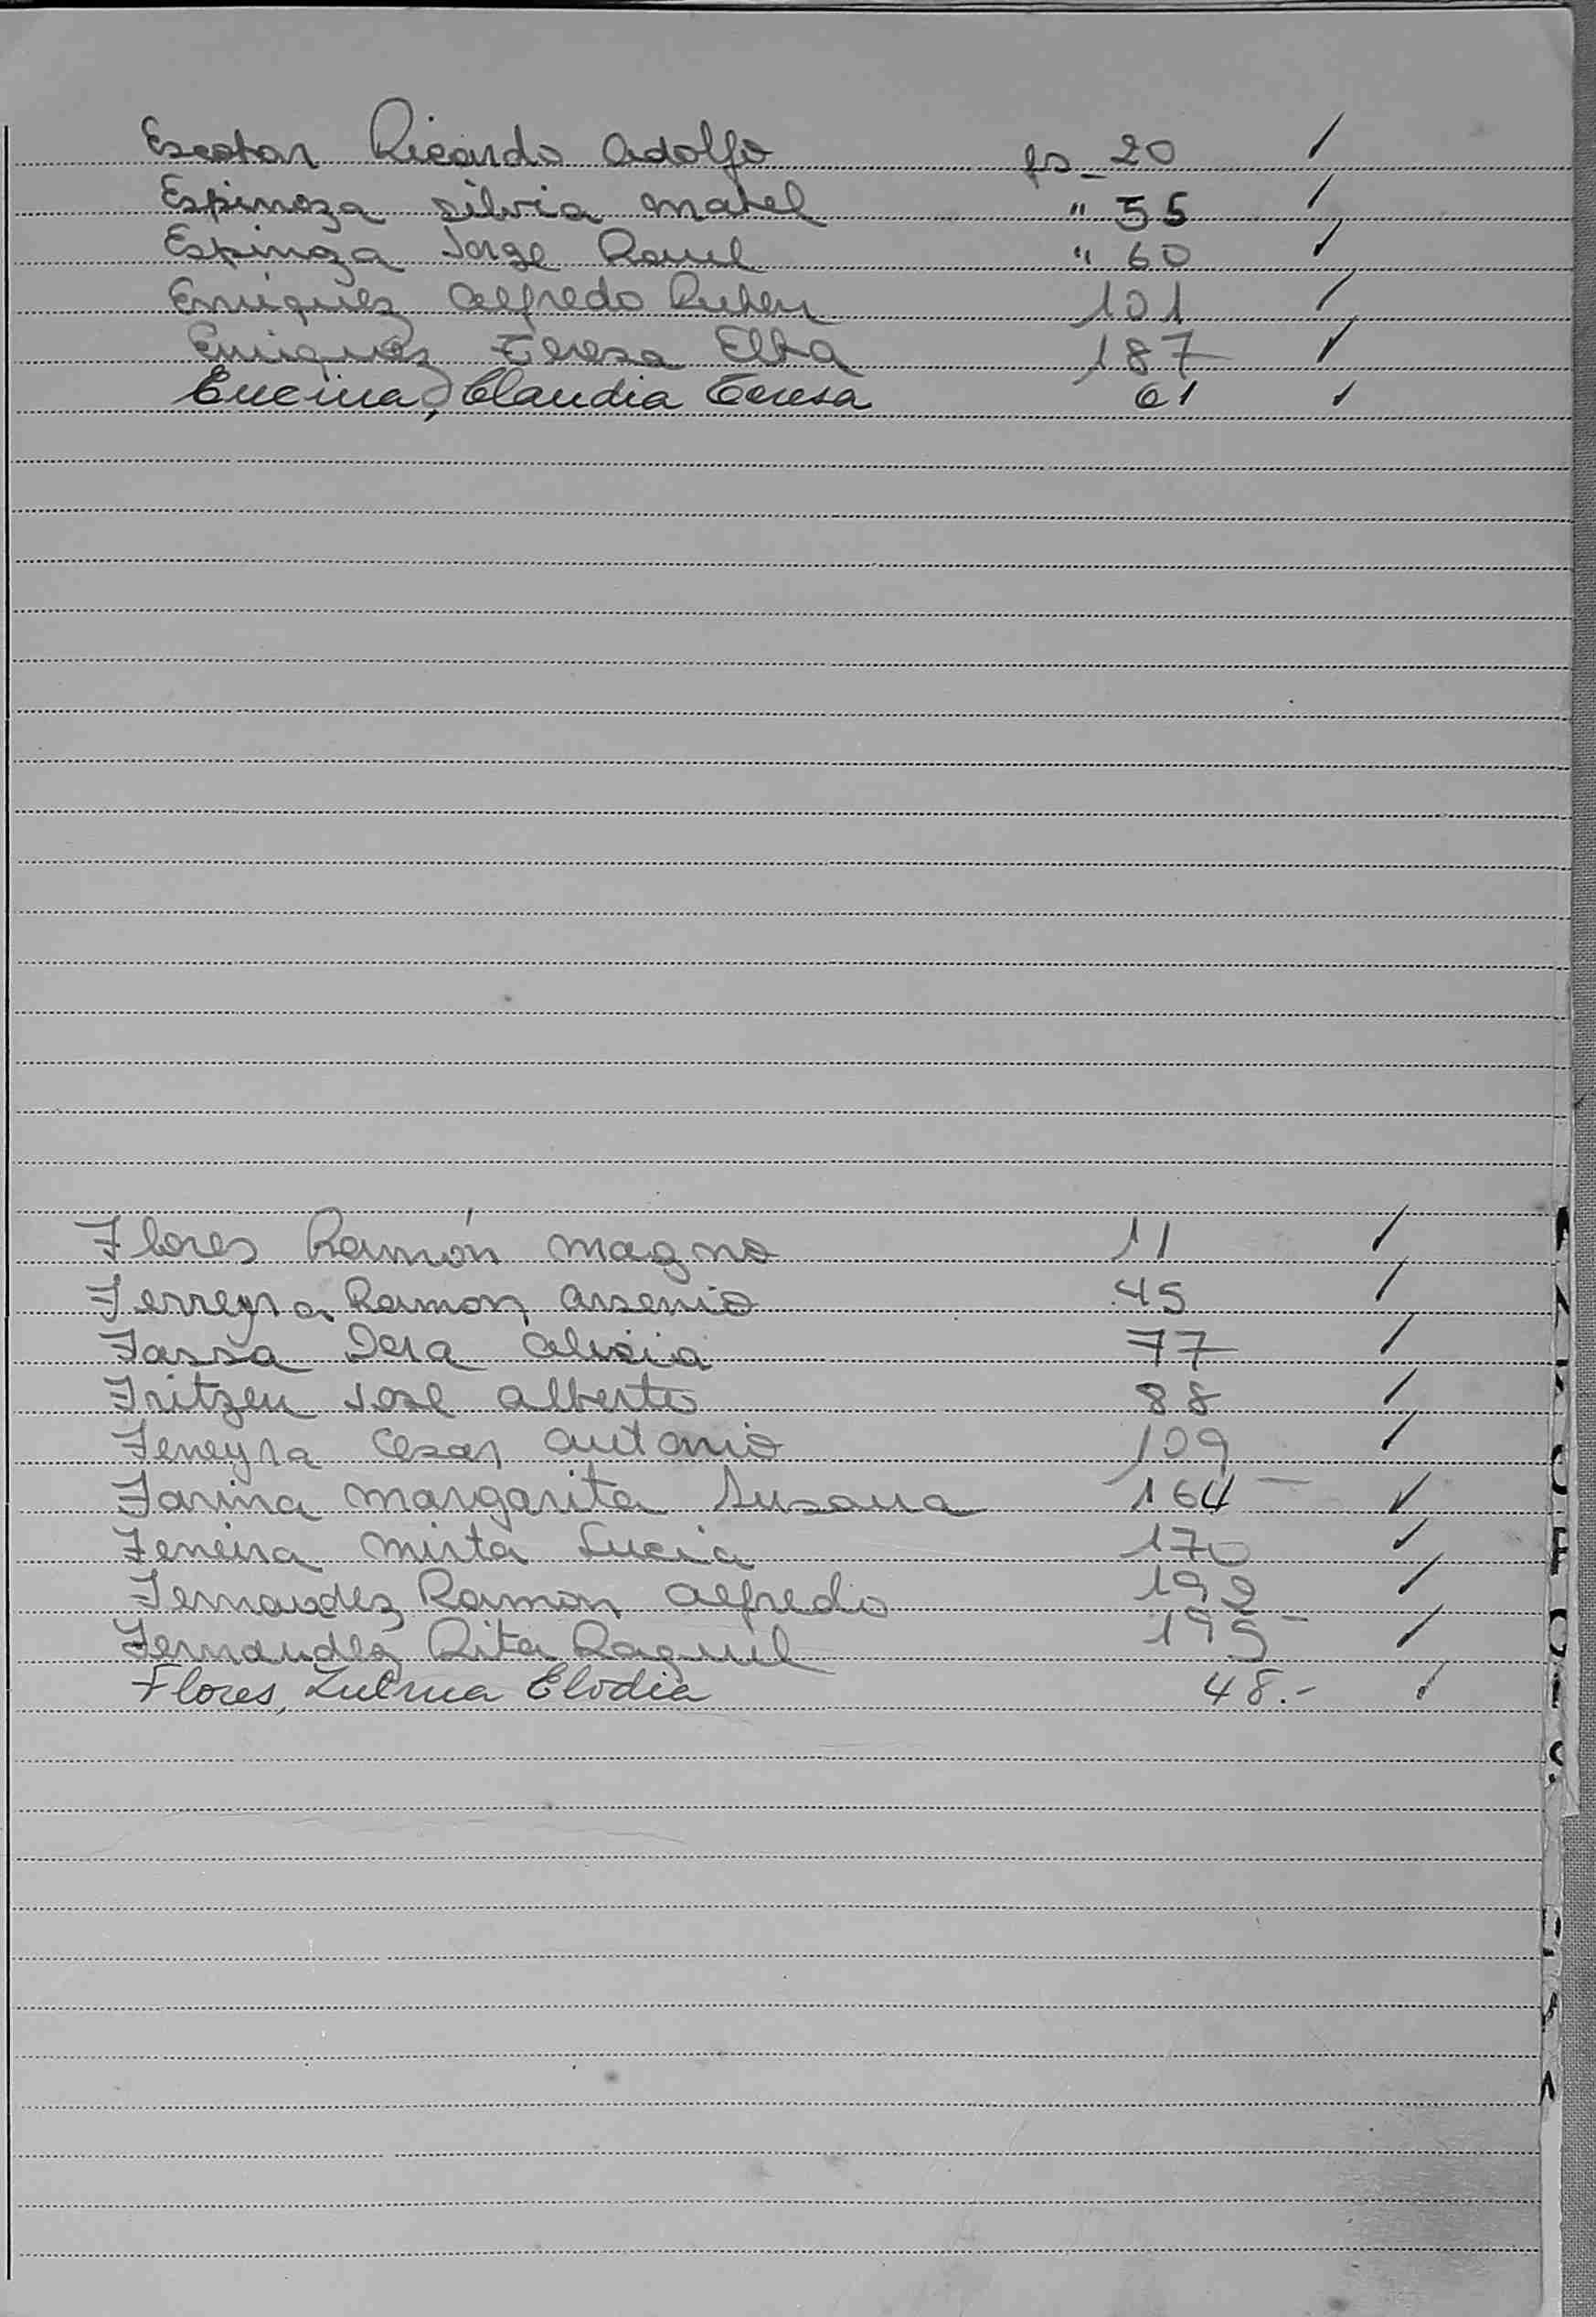 Escobar Ricardo Adolfo fs_ 20 ✓
Espinoza Silvia Mabel " 55 ✓
Espinoza Jorge Raul " 60 ✓
Enriquez Alfredo Ruben 101 ✓
Enriquez Teresa Elba 187 ✓
Encina, Claudia Teresa 61 ✓
Flores Ramón Magno 11 ✓
Ferreyra Ramon Arsenio 45 ✓
Fassa Alicia 77 ✓
Fritzen Jose Alberto 88 ✓
Ferreyra Cesar Antonio 109 ✓
Farina Margarita Susana 164 - ✓
Ferreira Mirta Lucia 170 ✓
Fernandez Ramon Alfredo 192 ✓
Fernandez Rita Raquel 195 - ✓
Flores, Zulma Elodia 48.- ✓